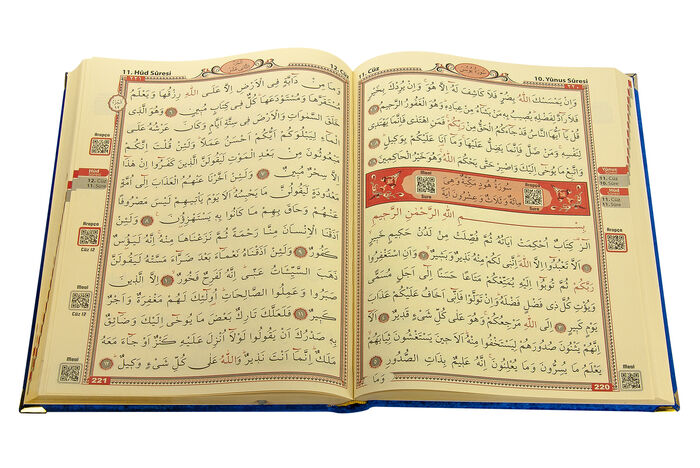 11. Cüz
10. Yûnus Sûresi
وَاِنْ يَمْسَسْكَ اللّٰهُ بِضُرٍّ فَلَا كَاشِفَ لَهُٓ اِلَّا هُوَۚ وَاِنْ يُرِدْكَ بِخَيْرٍ
فَلَا رَٓادَّ لِفَضْلِهٖۜ يُصٖيبُ بِهٖ مَنْ يَشَٓاءُ مِنْ عِبَادِهٖۜ وَهُوَ الْغَفُورُ الرَّحٖيمُ
قُلْ يَٓا اَيُّهَا النَّاسُ قَدْ جَٓاءَكُمُ الْحَقُّ مِنْ رَبِّكُمْۚ فَمَنِ اهْتَدٰى فَاِنَّمَا يَهْتَدٖي
لِنَفْسِهٖۚ وَمَنْ ضَلَّ فَاِنَّمَا يَضِلُّ عَلَيْهَاۚ وَمَٓا اَنَا۬ عَلَيْكُمْ بِوَكٖيلٍۜ
وَاتَّبِعْ مَا يُوحٰٓى اِلَيْكَ وَاصْبِرْ حَتّٰى يَحْكُمَ اللّٰهُۚ وَهُوَ خَيْرُ الْحَاكِمٖينَ
سُورَةُ هُودٍ مَكِّيَّةٌ وَهِيَ
مِائَةٌ وَثَلَاثٌ وَعِشْرُونَ اٰيَةً
Meal
Sure
Sure
بِسْمِ اللّٰهِ الرَّحْمٰنِ الرَّحٖيمِ
الٓرٰ۠ كِتَابٌ اُحْكِمَتْ اٰيَاتُهُ ثُمَّ فُصِّلَتْ مِنْ لَدُنْ حَكٖيمٍ خَبٖيرٍۙ
اَلَّا تَعْبُدُٓوا اِلَّا اللّٰهَۜ اِنَّنٖي لَكُمْ مِنْهُ نَذٖيرٌ وَبَشٖيرٌۙ وَاَنِ اسْتَغْفِرُوا
رَبَّكُمْ ثُمَّ تُوبُٓوا اِلَيْهِ يُمَتِّعْكُمْ مَتَاعًا حَسَنًا اِلٰٓى اَجَلٍ مُسَمًّى
وَيُؤْتِ كُلَّ ذٖي فَضْلٍ فَضْلَهُۜ وَاِنْ تَوَلَّوْا فَاِنّٖٓي اَخَافُ عَلَيْكُمْ عَذَابَ
يَوْمٍ كَبٖيرٍ اِلَى اللّٰهِ مَرْجِعُكُمْۚ وَهُوَ عَلٰى كُلِّ شَيْءٍ قَدٖيرٌ اَلَٓا
اِنَّهُمْ يَثْنُونَ صُدُورَهُمْ لِيَسْتَخْفُوا مِنْهُۜ اَلَا حٖينَ يَسْتَغْشُونَ ثِيَابَهُمْۙ
يَعْلَمُ مَا يُسِرُّونَ وَمَا يُعْلِنُونَۚ اِنَّهُ عَلٖيمٌ بِذَاتِ الصُّدُورِ
وَمَا
220
Yûnus
11. Cüz
10. Sûre
Hûd
11. Cüz
11. Sûre
Meal
11. Hûd Sûresi
12. Cüz
٢٢١
وَمَا مِنْ دَٓابَّةٍ فِي الْاَرْضِ اِلَّا عَلَى اللّٰهِ رِزْقُهَا وَيَعْلَمُ
مُسْتَقَرَّهَا وَمُسْتَوْدَعَهَاۜ كُلٌّ فٖي كِتَابٍ مُبٖينٍ وَهُوَ الَّذٖي
خَلَقَ السَّمٰوَاتِ وَالْاَرْضَ فٖي سِتَّةِ اَيَّامٍ وَكَانَ عَرْشُهُ عَلَى
الْمَٓاءِ لِيَبْلُوَكُمْ اَيُّكُمْ اَحْسَنُ عَمَلًاۜ وَلَئِنْ قُلْتَ اِنَّكُمْ
مَبْعُوثُونَ مِنْ بَعْدِ الْمَوْتِ لَيَقُولَنَّ الَّذٖينَ كَفَرُٓوا اِنْ هٰذَٓا
اِلَّا سِحْرٌ مُبٖينٌ وَلَئِنْ اَخَّرْنَا عَنْهُمُ الْعَذَابَ اِلٰٓى اُمَّةٍ
مَعْدُودَةٍ لَيَقُولُنَّ مَا يَحْبِسُهُۜ اَلَا يَوْمَ يَأْتٖيهِمْ لَيْسَ مَصْرُوفًا
عَنْهُمْ وَحَاقَ بِهِمْ مَا كَانُوا بِهٖ يَسْتَهْزِؤُ۫نَ
وَلَئِنْ اَذَقْنَا الْاِنْسَانَ مِنَّا رَحْمَةً ثُمَّ نَزَعْنَاهَا مِنْهُۚ اِنَّهُ لَيَؤُ۫سٌ
كَفُورٌ وَلَئِنْ اَذَقْنَاهُ نَعْمَٓاءَ بَعْدَ ضَرَّٓاءَ مَسَّتْهُ لَيَقُولَنَّ
ذَهَبَ السَّيِّـَٔاتُ عَنّٖيۜ اِنَّهُ لَفَرِحٌ فَخُورٌۙ اِلَّا الَّذٖينَ
صَبَرُوا وَعَمِلُوا الصَّالِحَاتِۜ اُو۬لٰٓئِكَ لَهُمْ مَغْفِرَةٌ وَاَجْرٌ
كَبٖيرٌ فَلَعَلَّكَ تَارِكٌ بَعْضَ مَا يُوحٰٓى اِلَيْكَ وَضَٓائِقٌ
بِهٖ صَدْرُكَ اَنْ يَقُولُوا لَوْلَٓا اُنْزِلَ عَلَيْهِ كَنْزٌ اَوْ جَٓاءَ مَعَهُ
مَلَكٌۜ اِنَّمَٓا اَنْتَ نَذٖيرٌۜ وَاللّٰهُ عَلٰى كُلِّ شَيْءٍ وَكٖيلٌۜ
221
Arapça
Hûd
12. Cüz
11. Sûre
Arapça
Cüz 12
Meal
Cüz 12
Meal